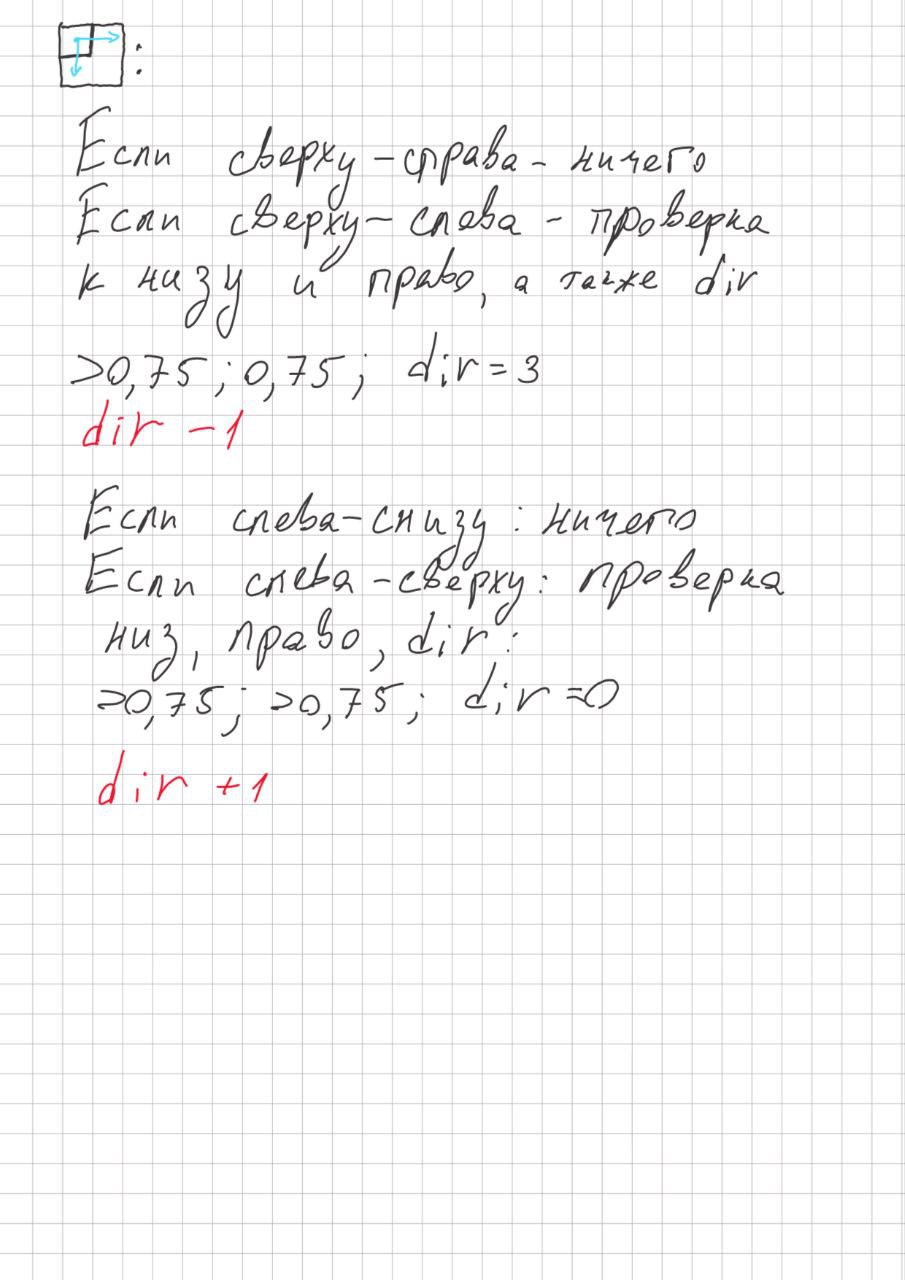 :
Если сверху-справа - ничего
Если сверху-слева - проверка
к низу и право, а также dir
>0,75; 0,75; dir=3
dir -1
Если слева-снизу: ничего
Если слева-сверху: проверка
низ, право, dir:
>0,75; >0,75; dir=0
dir +1